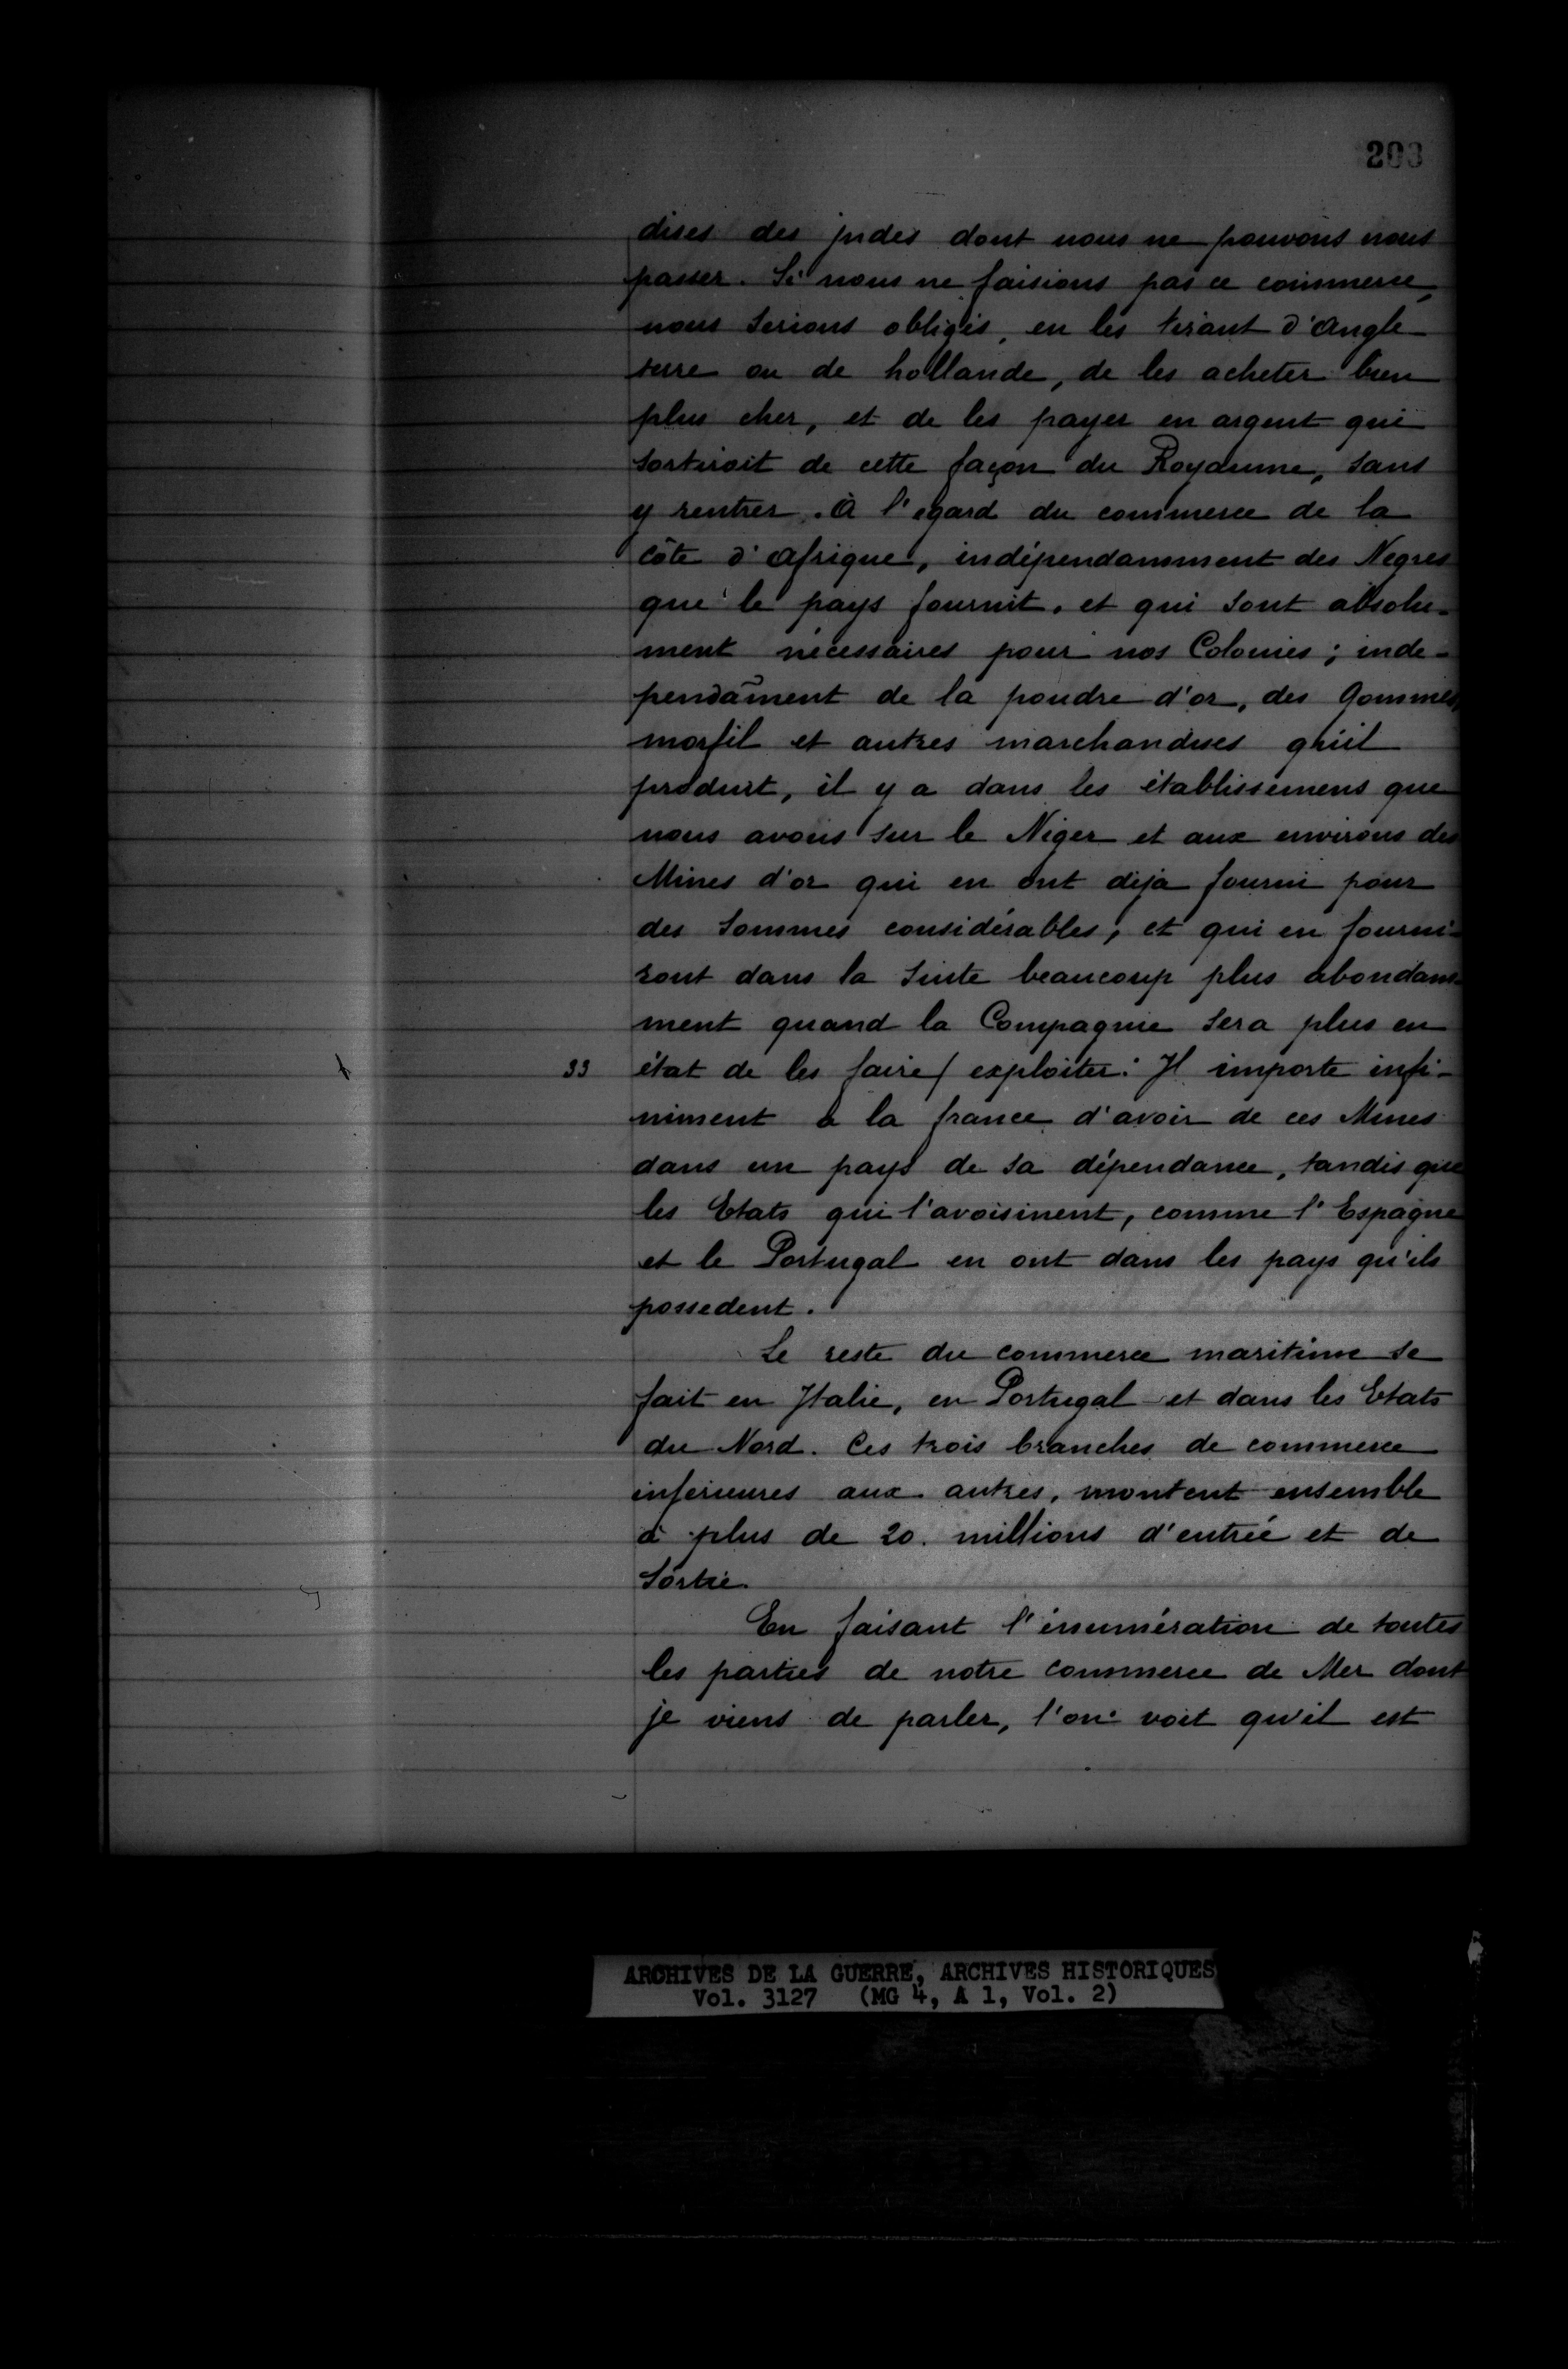 203
dises des jndes dont nous ne pouvons nous
passer. Si nous ne faisions pas ce commerce,
nous serions obligés, en les tirant d'Angle-
terre ou de hollande, de les acheter bien
plus cher, et de les payer en argent qui
sortiroit de cette façon du Royaume, sans
y rentrer. A l'egard du commerce de la
côte d'Afrique, indépendamment des Negres
que le pays fournit, et qui sont absolu-
ment nécessaires pour nos Colonies; inde-
pendam̃ent de la poudre d'or, des Gommes,
morfil et autres marchandises qu'il
produit, il y a dans les établissemens que
nous avons sur le Niger et aux environs des
Mines d'or qui en ont déja fourni pour
des sommes considérables, et qui en fourni-
ront dans la suite beaucoup plus abondam-
ment quand la Compagnie sera plus en
33 état de les faire/ exploiter: Jl importe infi-
niment à la france d'avoir de ces Mines
dans un pays de sa dépendance, tandis que
les Etats qui l'avoisinent, comme l'Espagne
et le Portugal en ont dans les pays qu'ils
possedent.
Le reste du commerce maritime se
fait en Jtalie, en Portugal et dans les Etats
du Nord. Ces trois branches de commerce
inferieures aux autres, montent ensemble
à plus de 20. millions d'entrée et de
Sortie.
En faisant l'énumération de toutes
les parties de notre commerce de Mer dont
je viens de parler, l'on voit qu'il est
ARCHIVES DE LA GUERRE, ARCHIVES HISTORIQUES
Vol. 3127 (MG 4, A 1, Vol. 2)